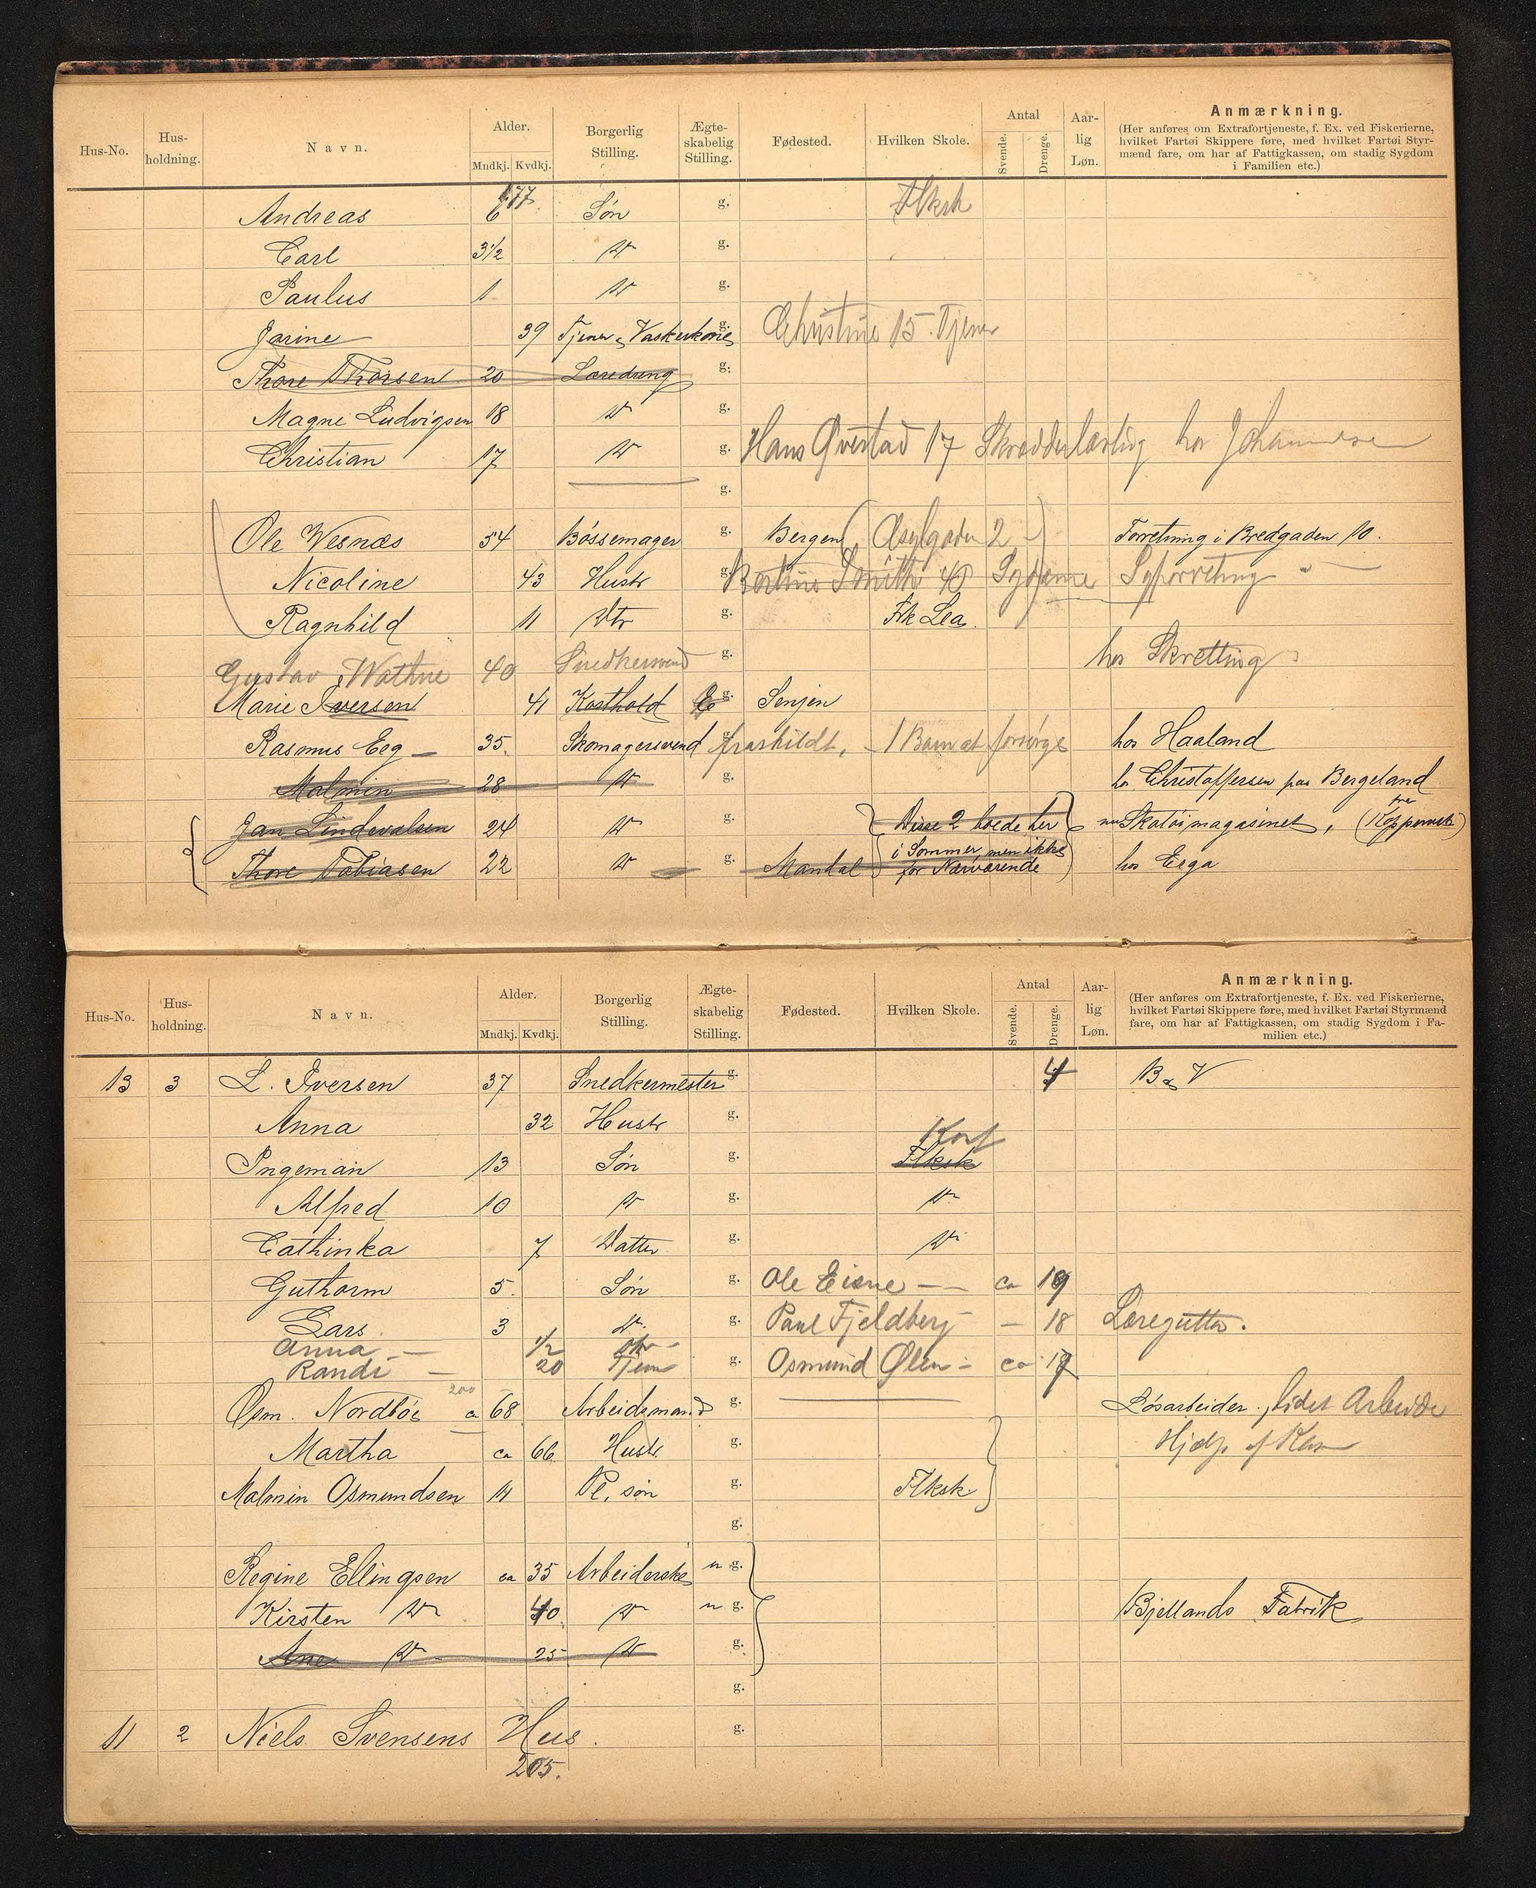 Hus-No. Hus-holdning. Navn. Alder. Mndkj. Kvdkj. Borgerlig Stilling. Ægte-skabelig Stilling. Fødested. Hvilken Skole. Antal Svende. Drenge. Aar-lig Løn. Anmærkning.
(Her anføres om Extrafortjeneste, f. Ex. ved Fiskerierne,
hvilket Fartøi Skippere føre, med hvilket Fartøi Styr-
mænd fare, om har af Fattigkassen, om stadig Sygdom
i Familien etc.)
177
Andreas 6 Søn g. Flksk
Carl 3½ D g.
Paulus 1 D g.
Jarine 39 Tjener & Vaskekone g. Christine 15. Tjener
Thore Thorsen 20 Læredreng g.
Magne Ludvigsen 18 D g.
Christian 17 D g. Hans Qvestad 17 Skrædderlærling hos Johannesen
g.
Ole Wesnæs 54 Bössemager g. Bergen (Asylgaden 2) Forretning i Bredgaden 10.
Nicoline 43 Hustr g. Bertine Smith 40 Syforretning
Ragnhild 11 Dtr g. Frk Lea.
Gustav Wathne 40 Snedkersvend g. hos Skretting
Marie Iversen 41 Kosthold E g. Senjen
Rasmus Eeg 35. Skomagersvend g. fraskildt, 1 Barn at forsørge hos Haaland
Malmin 28 D g. hos Christoffersen paa Bergeland
Jan Lindevalsen 24 D g. Disse 2 boede her nu Skotøimagasinet, (fra Kopperuik)
i Sommer men ikke
Thore Tobiasen 22 D g. Mandal for Nærværende hos Erga
Hus-No. Hus-holdning. Navn. Alder. Mndkj. Kvdkj. Borgerlig Stilling. Ægte-skabelig Stilling. Fødested. Hvilken Skole. Antal Svende. Drenge. Aar-lig Løn. Anmærkning.
(Her anføres om Extrafortjeneste, f. Ex. ved Fiskerierne,
hvilket Fartøi Skippere føre, med hvilket Fartøi Styrmænd
fare, om har af Fattigkassen, om stadig Sygdom i Fa-
milien etc.)
13 3 L. Iversen 37 Snedkermester g. 4 B & V
Anna 32 Hustr g.
Kons
Ingeman 13 Søn g. Flksk
Alfred 10 D g. D
Cathinka 7 Datter g. D
Guthorm 5. Søn g. Ole Eiene — ca 19
Lars 3 D g. Paul Fjeldberg — 18 Læregutter.
Anna — ½ Dtr
Randi — 20 Tjener g. Osmund Ølen — ca 17
200
Osm. Nordböe ca 68 Arbeidsmand g. Løsarbeider, lidet Arbeide
Martha ca 66 Hustr. g. Hjælp af Kas
Malmin Osmundsen 11 Pl. søn g. Flksk
g.
Regine Ellingsen ca 35 Arbeiderske u g.
Kirsten D 40 D u g. Bjellands Fabrik
Ane D 25 D g.
g.
11 2 Niels Svensens Hus. g.
205.